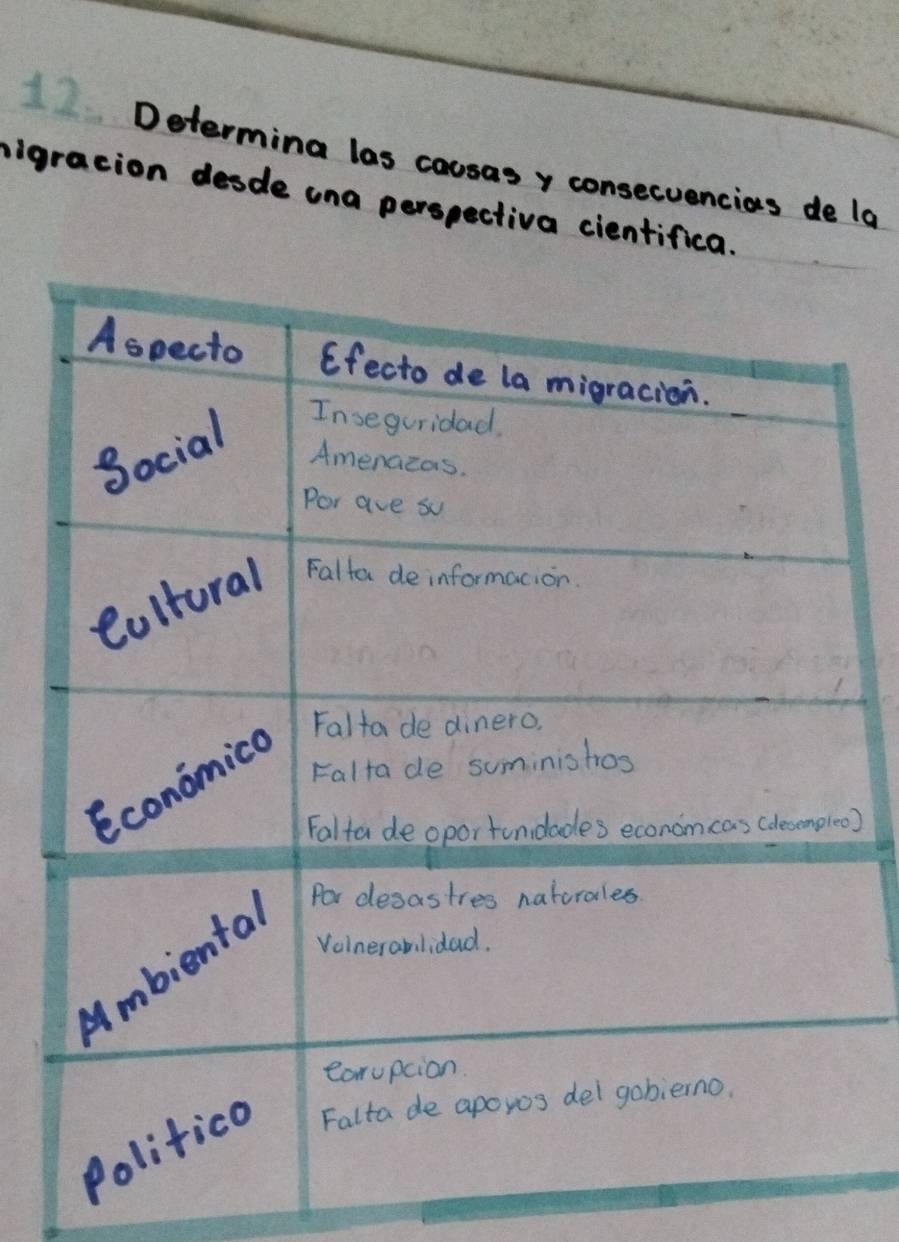 12. Determina las causas y consecuencias de la
migracion desde una perspectiva cientifica.
Aspecto
Efecto de la migración.
Social
Inseguridad.
Amenazas.
Por que su
Cultural
Falta de información.
Económico
Falta de dinero.
Falta de suministros
Falta de oportunidades económicas (desempleo)
Ambiental
Por desastres naturales
Vulnerabilidad.
Politico
Corupcion.
Falta de apoyos del gobierno.